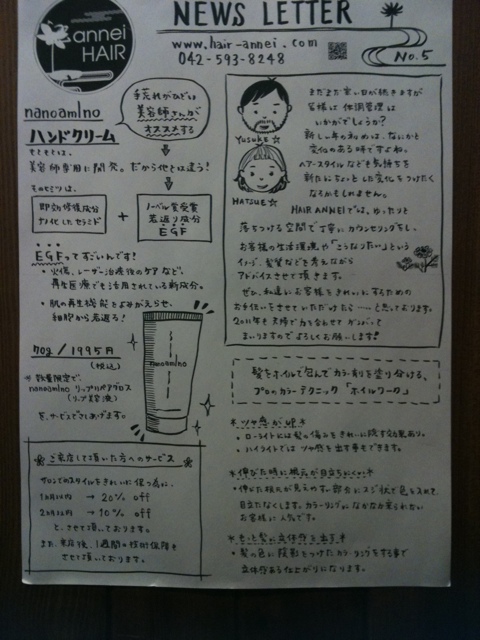 annei
HAIR
NEWS LETTER
www.hair-annei.com
042-593-8248
No.5
nanoamino
ハンドクリーム
手荒れがひどい
美容師さんが
オススメする
そもそもは、
美容師専用に開発。だから他とは違う!
そのヒミツは、
即効修復成分
ナノ化したセラミド
+
ノーベル賞受賞
若返り成分
EGF
EGFってすごいんです!
・火傷、レーザー治療後のケアなど、
再生医療でも活用されている新成分。
・肌の再生機能をよみがえらせ、
細胞から若返る!
70g/1995円
(税込)
※数量限定で、
nanoamino リップリペアグロス
(リップ美容液)
を、サービスでさしあげます。
nanoamino
ご来店して頂いた方へのサービス
サロンでのスタイルをきれいに保つ為に、
1ヵ月以内 → 20% off
2ヵ月以内 → 10% off
と、させて頂いております。
また、来店後、1週間の技術保障も
させて頂いております。
Yusuke☆
HATSUE☆
まだまだ寒い日が続きますが
皆様は体調管理は
いかがでしょうか?
新しい年の初めは、なにかと
変化のある時ですよね。
ヘアースタイルなども気持ちを
新たにちょっとした変化をつけたく
なるかもしれません。
HAIR ANNEIでは、ゆったりと
落ちつける空間で丁寧にカウンセリングをし、
お客様の生活環境や「こうなりたい」という
イメージ、髪質などを考えながら
アドバイスさせて頂きます。
ぜひ、私達にお客様をきれいに、するための
お手伝いをさせていただけたら……と思っております。
2011年も夫婦で力を合わせてガンバって
まいりますのでよろしくお願いします!
髪をホイルで包んでカラー剤を塗り分ける、
プロのカラーテクニック「ホイルワーク」
*ツヤ感が出る*
・ローライトには髪の傷みをきれいに隠す効果あり。
・ハイライトでは ツヤ感を出す事もできます。
*伸びた時に根元が目立ちにくい*
・伸びた根元が見えやすい部分にスジ状で色を入れて、
目立たなくします。カラーリングになかなか来られない
お客様に人気です。
*もっと髪に立体感を出す*
・髪の色に陰影をつけたカラーリングをする事で
立体感ある仕上がりになります。